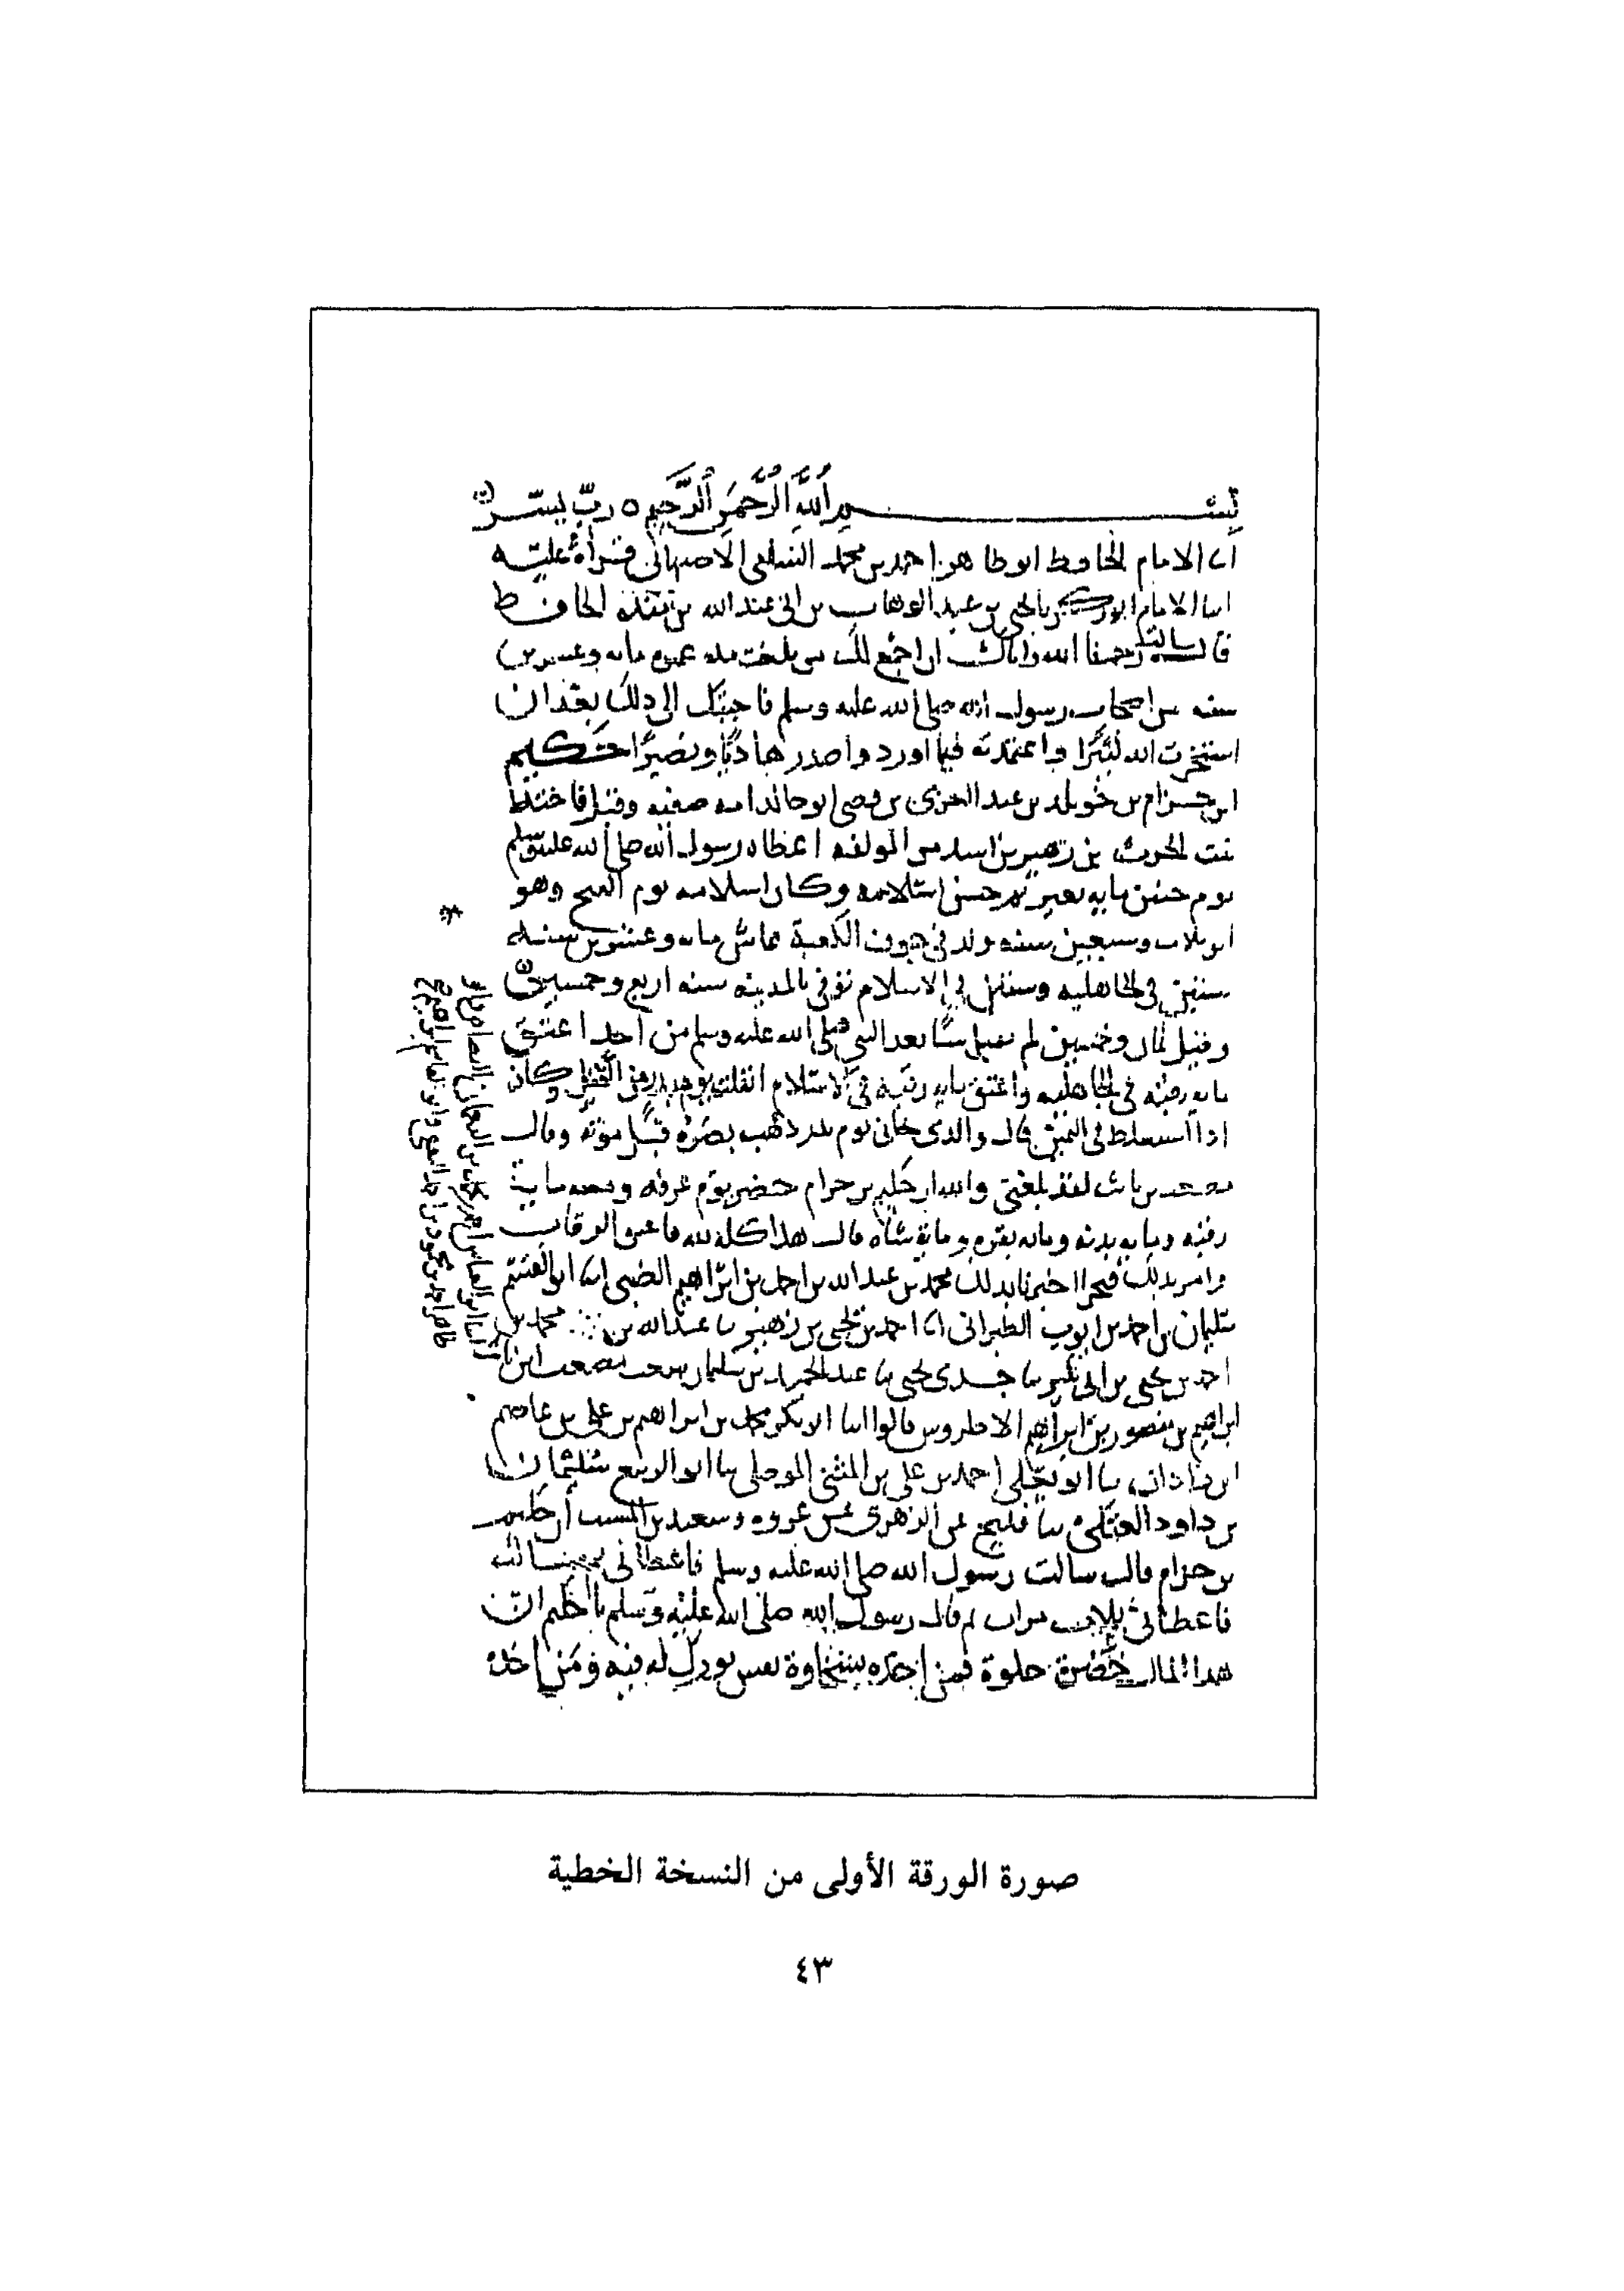 بسم الله الرحمن الرحيم ٥ رب يسر
انا الامام الحافظ ابو طاهر احمد بن محمد السلفي الاصبهاني قراة عليه
انبا الامام ابو زكريا يحيى بن عبد الوهاب بن ابي عبد الله بن منده الحافظ
قال سالت رحمنا الله واياك ان اجمع لك من بلغت مدة عمره مايه وعشرين
سنه من اصحاب رسول الله صلى الله عليه وسلم فاجبتك الى ذلك بعد ان
استخرت الله واعتمدته فيما اورد واصدر هاديًا ونصيرًا حكيم
ابن حزام بن خويلد بن عبد العزى بن قصي ابو خالد امه صفيه وقيل فاخته
بنت الحرث بن زهير بن اسد من المولفه اعطاه رسول الله صلى الله عليه وسلم
يوم حنين مايه بعير ثم حسن اسلامه وكان اسلامه يوم الفتح وهو
ابن ثلاث وسبعين سنه ولد في جوف الكعبة عاش مايه وعشرين سنه
ستين في الجاهليه وستين في الاسلام توفي بالمدينه سنه اربع وخمسين
وقيل ثمان وخمسين لم يقبل شيًا بعد النبي صلى الله عليه وسلم من احد اعتق
مايه رقبه في الجاهليه واعتق مايه رقبه في الاسلام انفلت يوم بدر من القتل وكان
اذا استغلظ في اليمين قال والذي نجاني يوم بدر ذهب بصره قبل موته وقال
مصعب بن ثابت لقد بلغني والله ان حكيم بن حزام حضر يوم عرفه ومعه ماية
رقبه ومايه بدنه ومايه بقره وماية شاه قال هذا كله لله فاعتق الرقاب
وامر بذلك فنحر اخبرنا بذلك محمد بن عبد الله بن احمد بن ابراهيم الضبي انا ابو القسم
سليمان بن احمد بن ايوب الطبراني انا احمد بن يحيى بن زهير نا عبد الله بن محمد بن
احمد بن يحيى بن ابي بكير نا جدي يحيى نا عبد الحميد بن سليمان سمعت مصعب ابن ثابت
ابراهيم بن منصور بن ابراهيم قالوا انبا ابو بكر محمد بن ابراهيم بن علي بن عاصم
ابن زاذان نا ابو يعلى احمد بن علي بن المثنى الموصلي نا ابو الربيع سليمان
بن داود العتكي نا فليح عن الزهري عن عروه وسعيد بن المسيب أن حكيم
بن حزام قال سالت رسول الله صلى الله عليه وسلم فاعطاني ثم سالته
فاعطاني ثلاث مرات ثم قال رسول الله صلى الله عليه وسلم يا حكيم ان
هذا المال خضرة حلوة فمن اخذه بسخاوة نفس بورك له فيه ومن اخذه
صورة الورقة الأولى من النسخة الخطية
٤٣